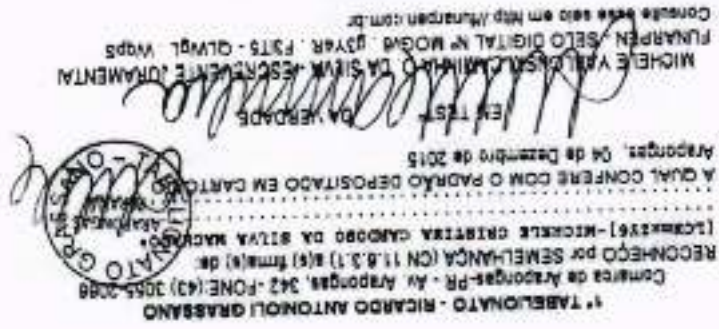 1º TABELIONATO - RICARDO ANTONIOLI GRASSANO
Comarca de Arapongas-PR - Av. Arapongas, 342 - FONE (43) 3055-2066
RECONHEÇO por SEMELHANÇA (CN 11.6.3.1) a(s) firma(s) de:
-MICHELE CRISTINA CARDOSO DA SILVA MACHADO
A QUAL CONFERE COM O PADRÃO DEPOSITADO EM CARTÓRIO
Arapongas, 04 de Dezembro de 2015
EM TESTº DA VERDADE
MICHELE DA SILVA -ESCREVENTE JURAMENT
FUNARPEN - SELO DIGITAL Nº MOGv6 . g3Y4R . F3IT5 - QLWGL . WqpS
Consulte esse selo em http://funarpen.com.br
TABELIONATO GRASSANO
ARAPONGAS
PARANÁ